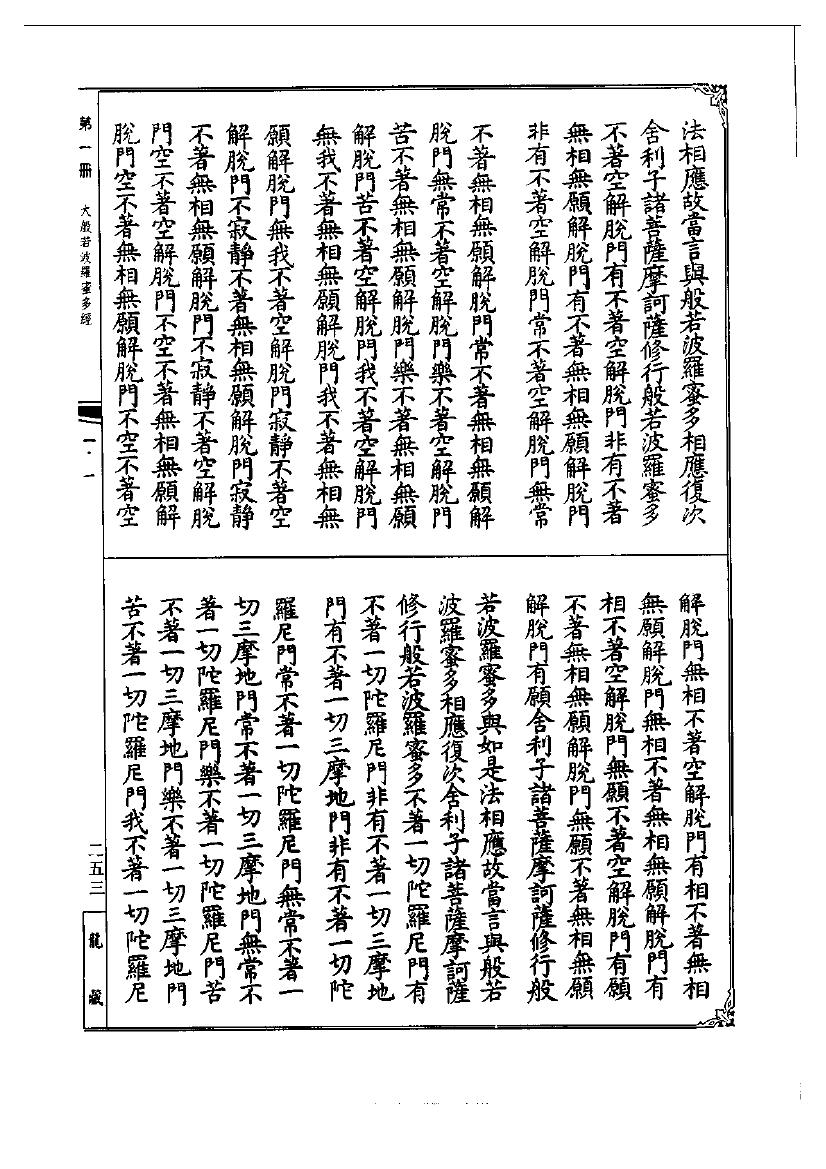 法相應故當言與般若波羅蜜多相應復次
舍利子諸菩薩摩訶薩修行般若波羅蜜多
不著空解脫門有不著空解脫門非有不著
無相無願解脫門有不著無相無願解脫門
非有不著空解脫門常不著空解脫門無常
不著無相無願解脫門常不著無相無願解
脫門無常不著空解脫門樂不著空解脫門
苦不著無相無願解脫門樂不著無相無願
解脫門苦不著空解脫門我不著空解脫門
無我不著無相無願解脫門我不著無相無
願解脫門無我不著空解脫門寂靜不著空
解脫門不寂靜不著無相無願解脫門寂靜
不著無相無願解脫門不寂靜不著空解脫
門空不著空解脫門不空不著無相無願解
脫門空不著無相無願解脫門不空不著空
解脫門無相不著空解脫門有相不著無相
無願解脫門無相不著無相無願解脫門有
相不著空解脫門無願不著空解脫門有願
不著無相無願解脫門無願不著無相無願
解脫門有願舍利子諸菩薩摩訶薩修行般
若波羅蜜多與如是法相應故當言與般若
波羅蜜多相應復次舍利子諸菩薩摩訶薩
修行般若波羅蜜多不著一切陀羅尼門有
不著一切陀羅尼門非有不著一切三摩地
門有不著一切三摩地門非有不著一切陀
羅尼門常不著一切陀羅尼門無常不著一
切三摩地門常不著一切三摩地門無常不
著一切陀羅尼門樂不著一切陀羅尼門苦
不著一切三摩地門樂不著一切三摩地門
苦不著一切陀羅尼門我不著一切陀羅尼
第一冊 大般若波羅蜜多經
一·一
二五三
龍藏